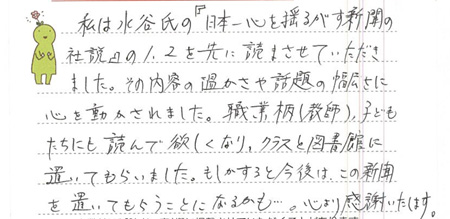 私は水谷氏の『日本一心を揺るがす新聞の
社説』の1.2を先に読まさせていただき
ました。その内容の温かさや話題の幅広さに
心を動かされました。職業柄(教師)、子ども
たちにも読んで欲しくなり、クラスと図書館に
置いてもらいました。もしかすると今後は、この新聞
を置いてもらうことになるかも…。心より感謝いたします。